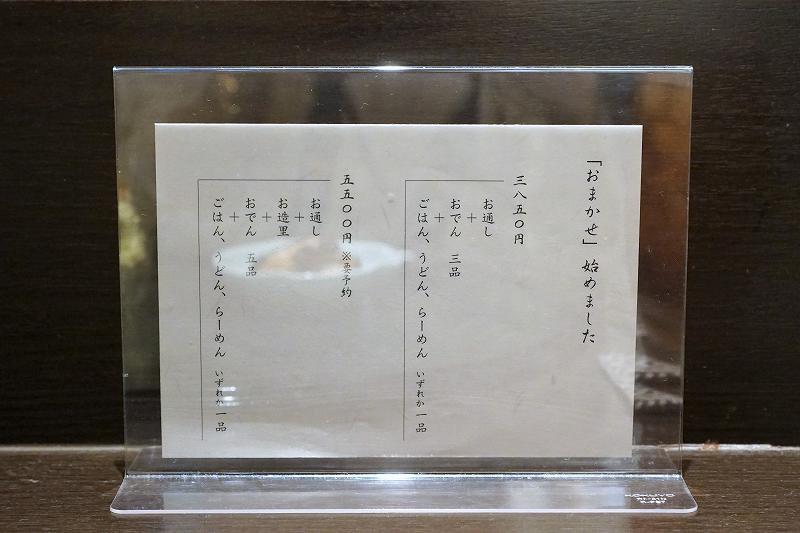 「おまかせ」始めました
三八五〇円
お通し
+
おでん 三品
+
ごはん、うどん、らーめん いずれか一品
五五〇〇円 ※要予約
お通し
+
お造里
+
おでん 五品
+
ごはん、うどん、らーめん いずれか一品
KOKUYO